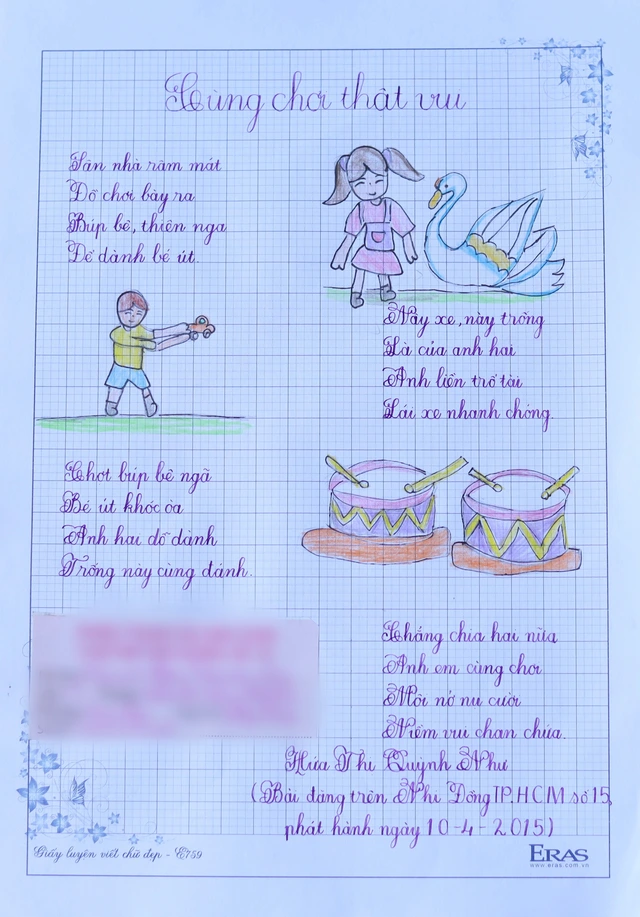 Cùng chơi thật vui
Sân nhà râm mát
Đồ chơi bày ra
Búp bê, thiên nga
Để dành bé út.
Này xe, này trống
Là của anh hai
Anh liền trổ tài
Lái xe nhanh chóng.
Chợt búp bê ngã
Bé út khóc òa
Anh hai dỗ dành
Trống này cùng đánh.
Chẳng chia hai nữa
Anh em cùng chơi
Môi nở nụ cười
Niềm vui chan chứa.
Hứa Thị Quỳnh Như
(Bài đăng trên Nhi Đồng TP.HCM số 15,
phát hành ngày 10-4-2015)
Giấy luyện viết chữ đẹp - E759
ERAS
www.eras.com.vn